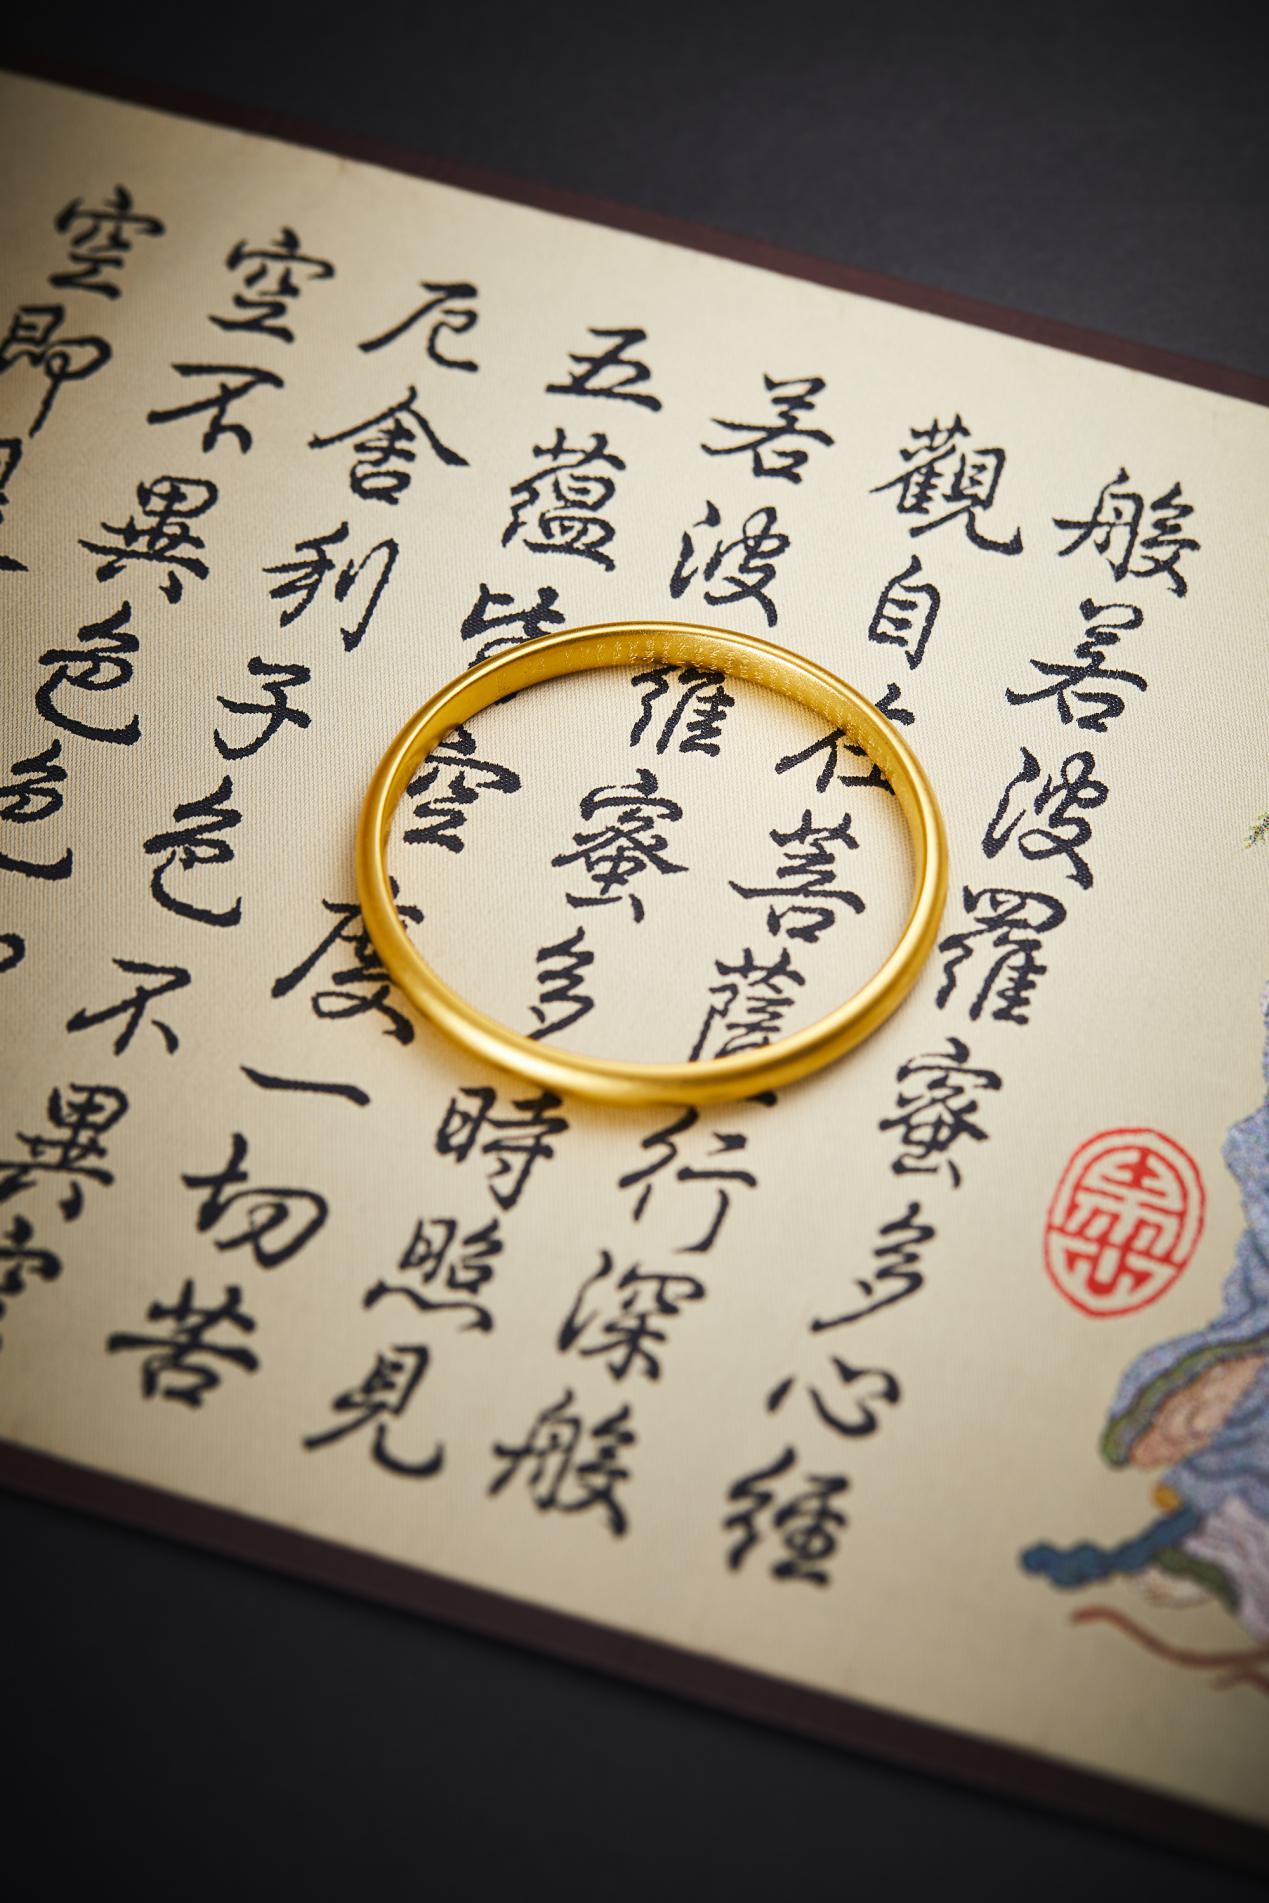 般若波羅蜜多心經
觀自在菩薩行深般
若波羅蜜多時照見
五蘊皆空度一切苦
厄舍利子色不異空
空不異色色
空即